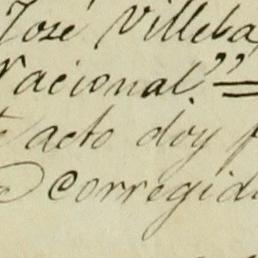 José Villeba
Nacional" =
acto doy f
corregid